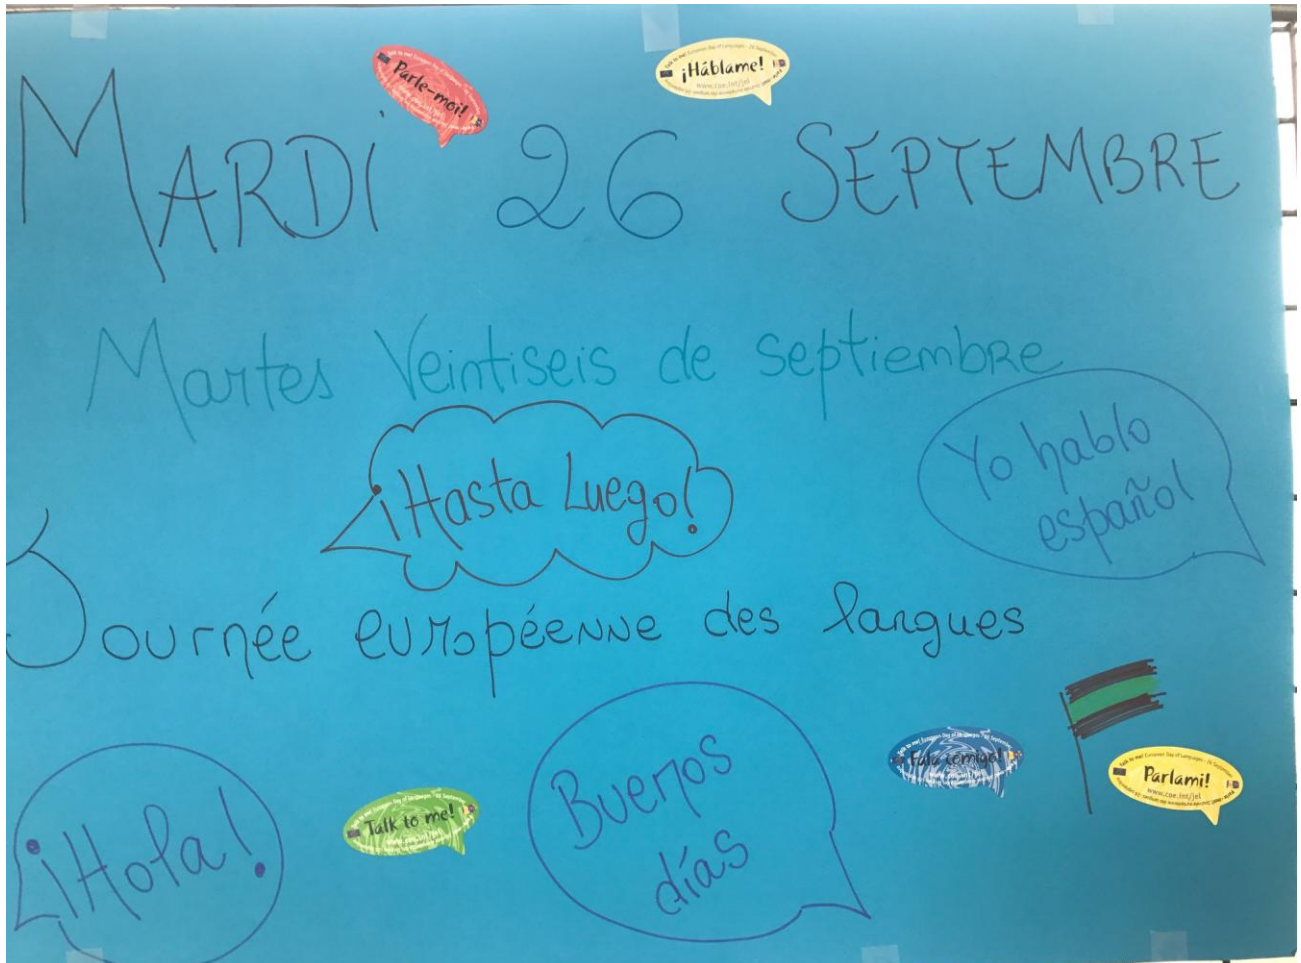 Parle-moi!
¡Háblame!
www.coe.int/jel
MARDI 26 SEPTEMBRE
Martes Veintiseis de septiembre
¡Hasta Luego!
Yo hablo
español
Journée européenne des langues
¡Hola!
Talk to me!
Buenos
días
Fala comigo!
Parlami!
www.coe.int/jel